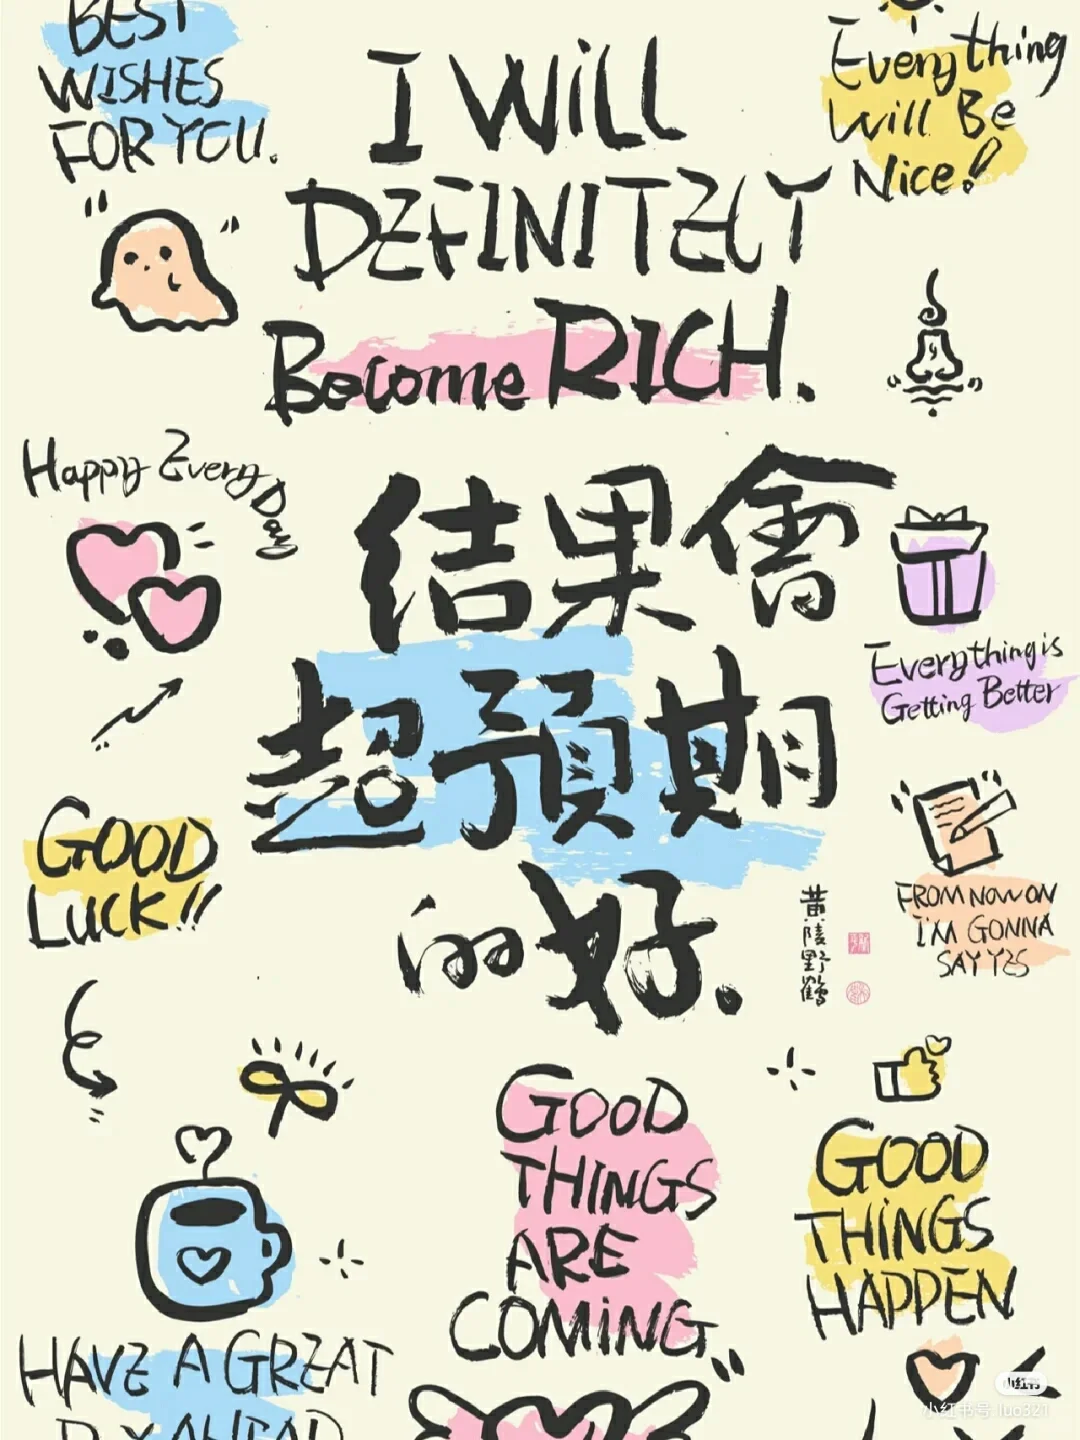 BEST
WISHES
FOR YOU.
I Will
DEFINITELY
Become RICH.
Everything
Will Be
Nice!
Happy Every Day
结果會
超預期
的好.
黄陵野鹤
Everything is
Getting Better
GOOD
LUCK!!
FROM NOW ON
I'M GONNA
SAY YES
GOOD
THINGS
ARE
COMING
GOOD
THINGS
HAPPEN
HAVE A GREAT
DAY AHEAD
小红书
小红书号 luo321